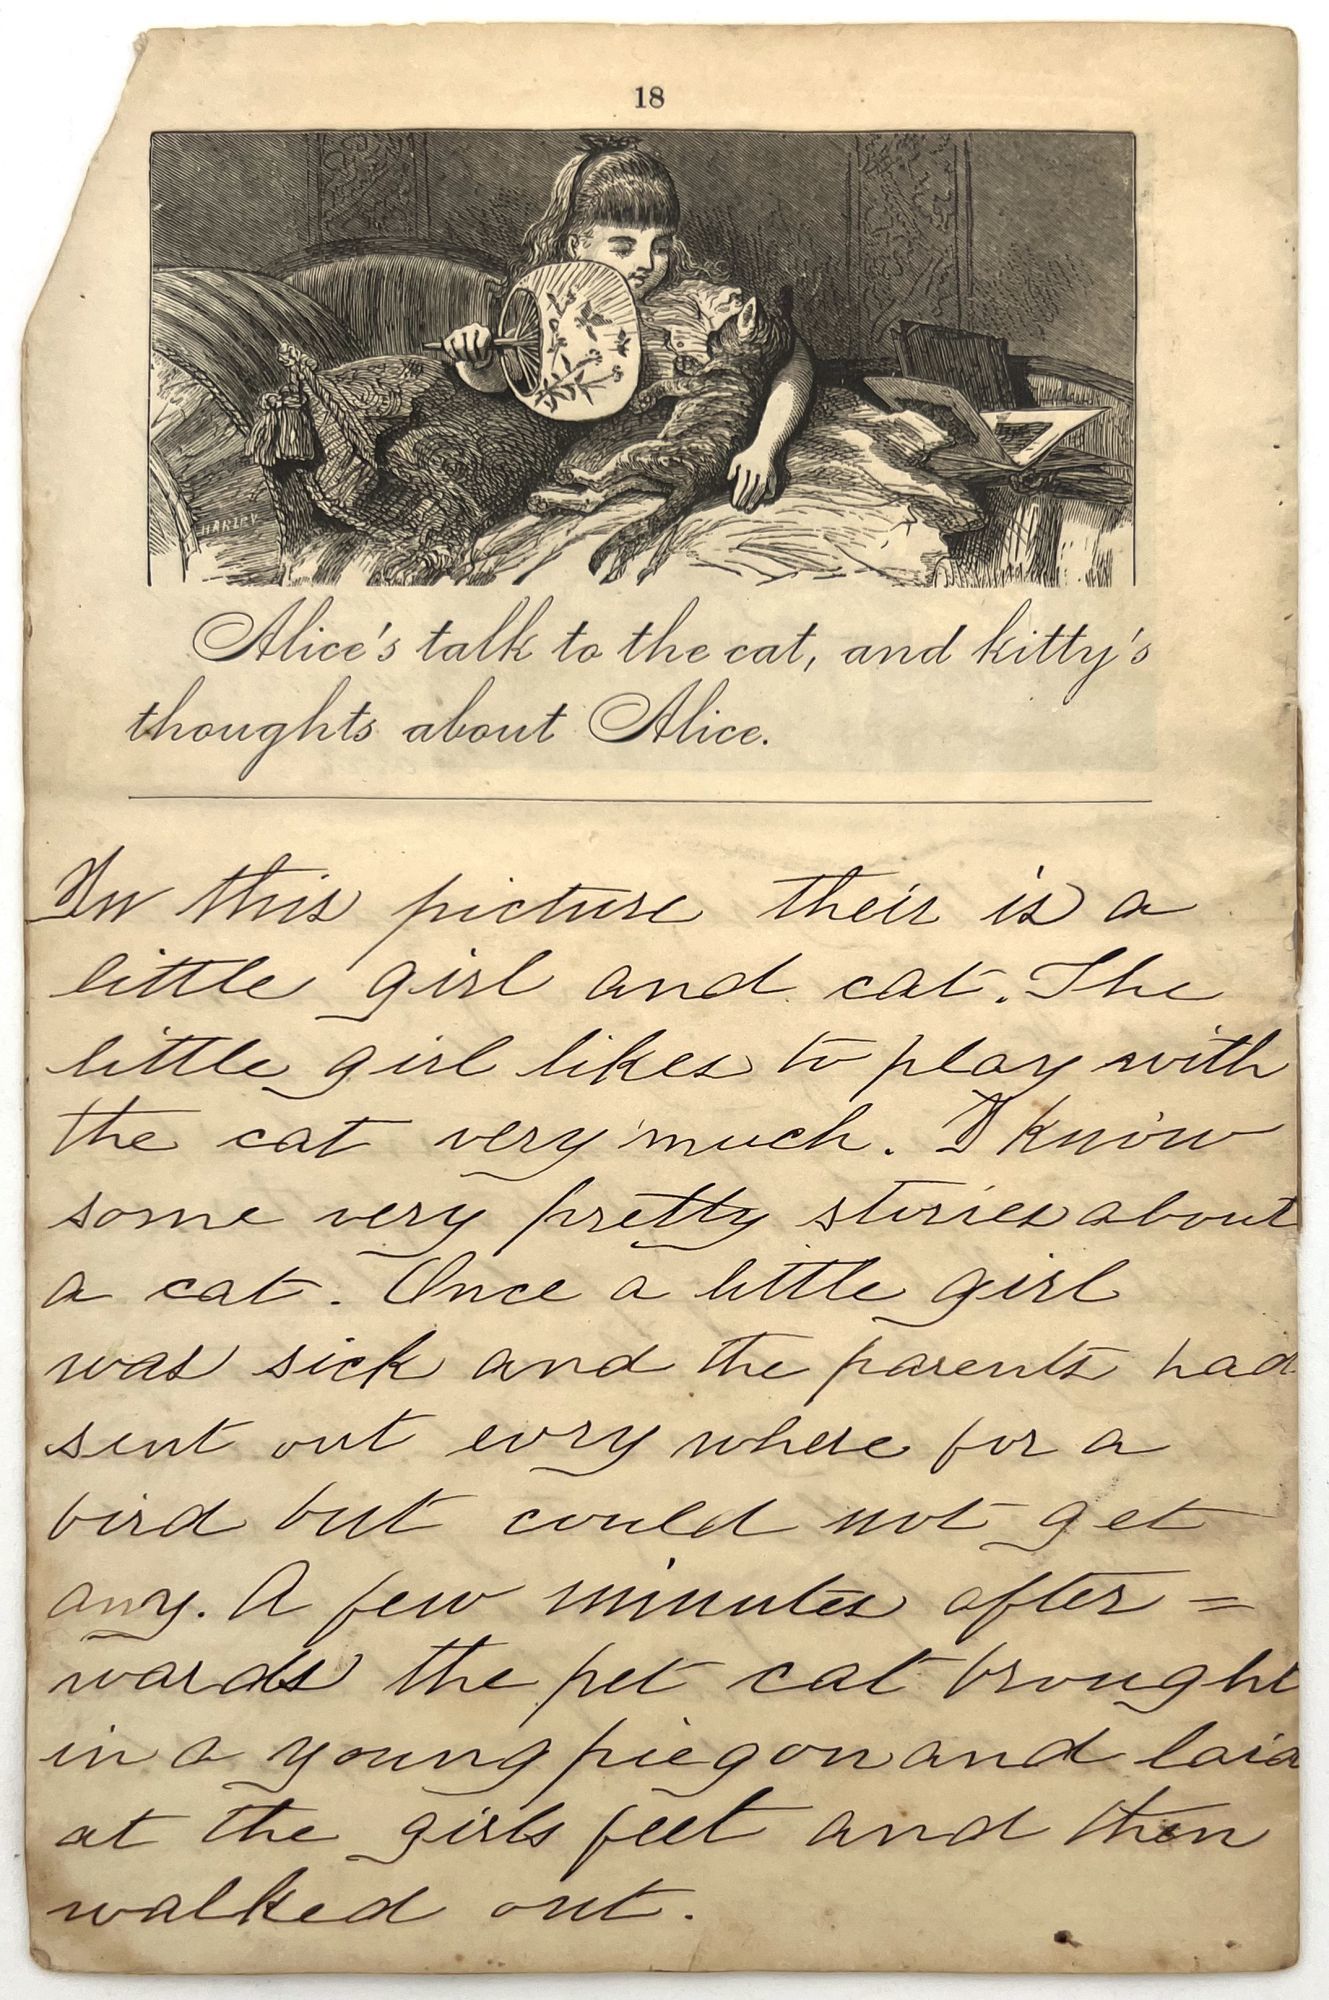 18
HARLEY
Alice's talk to the cat, and kitty's
thoughts about Alice.
In this picture their is a
little girl and cat. The
little girl likes to play with
the cat very much. I know
some very pretty stories about
a cat. Once a little girl
was sick and the parents had
sent out evry where for a
bird but could not get
any. A few minutes after=
wards the pet cat brought
in a young piegon and laid
at the girls feet and then
walked out.